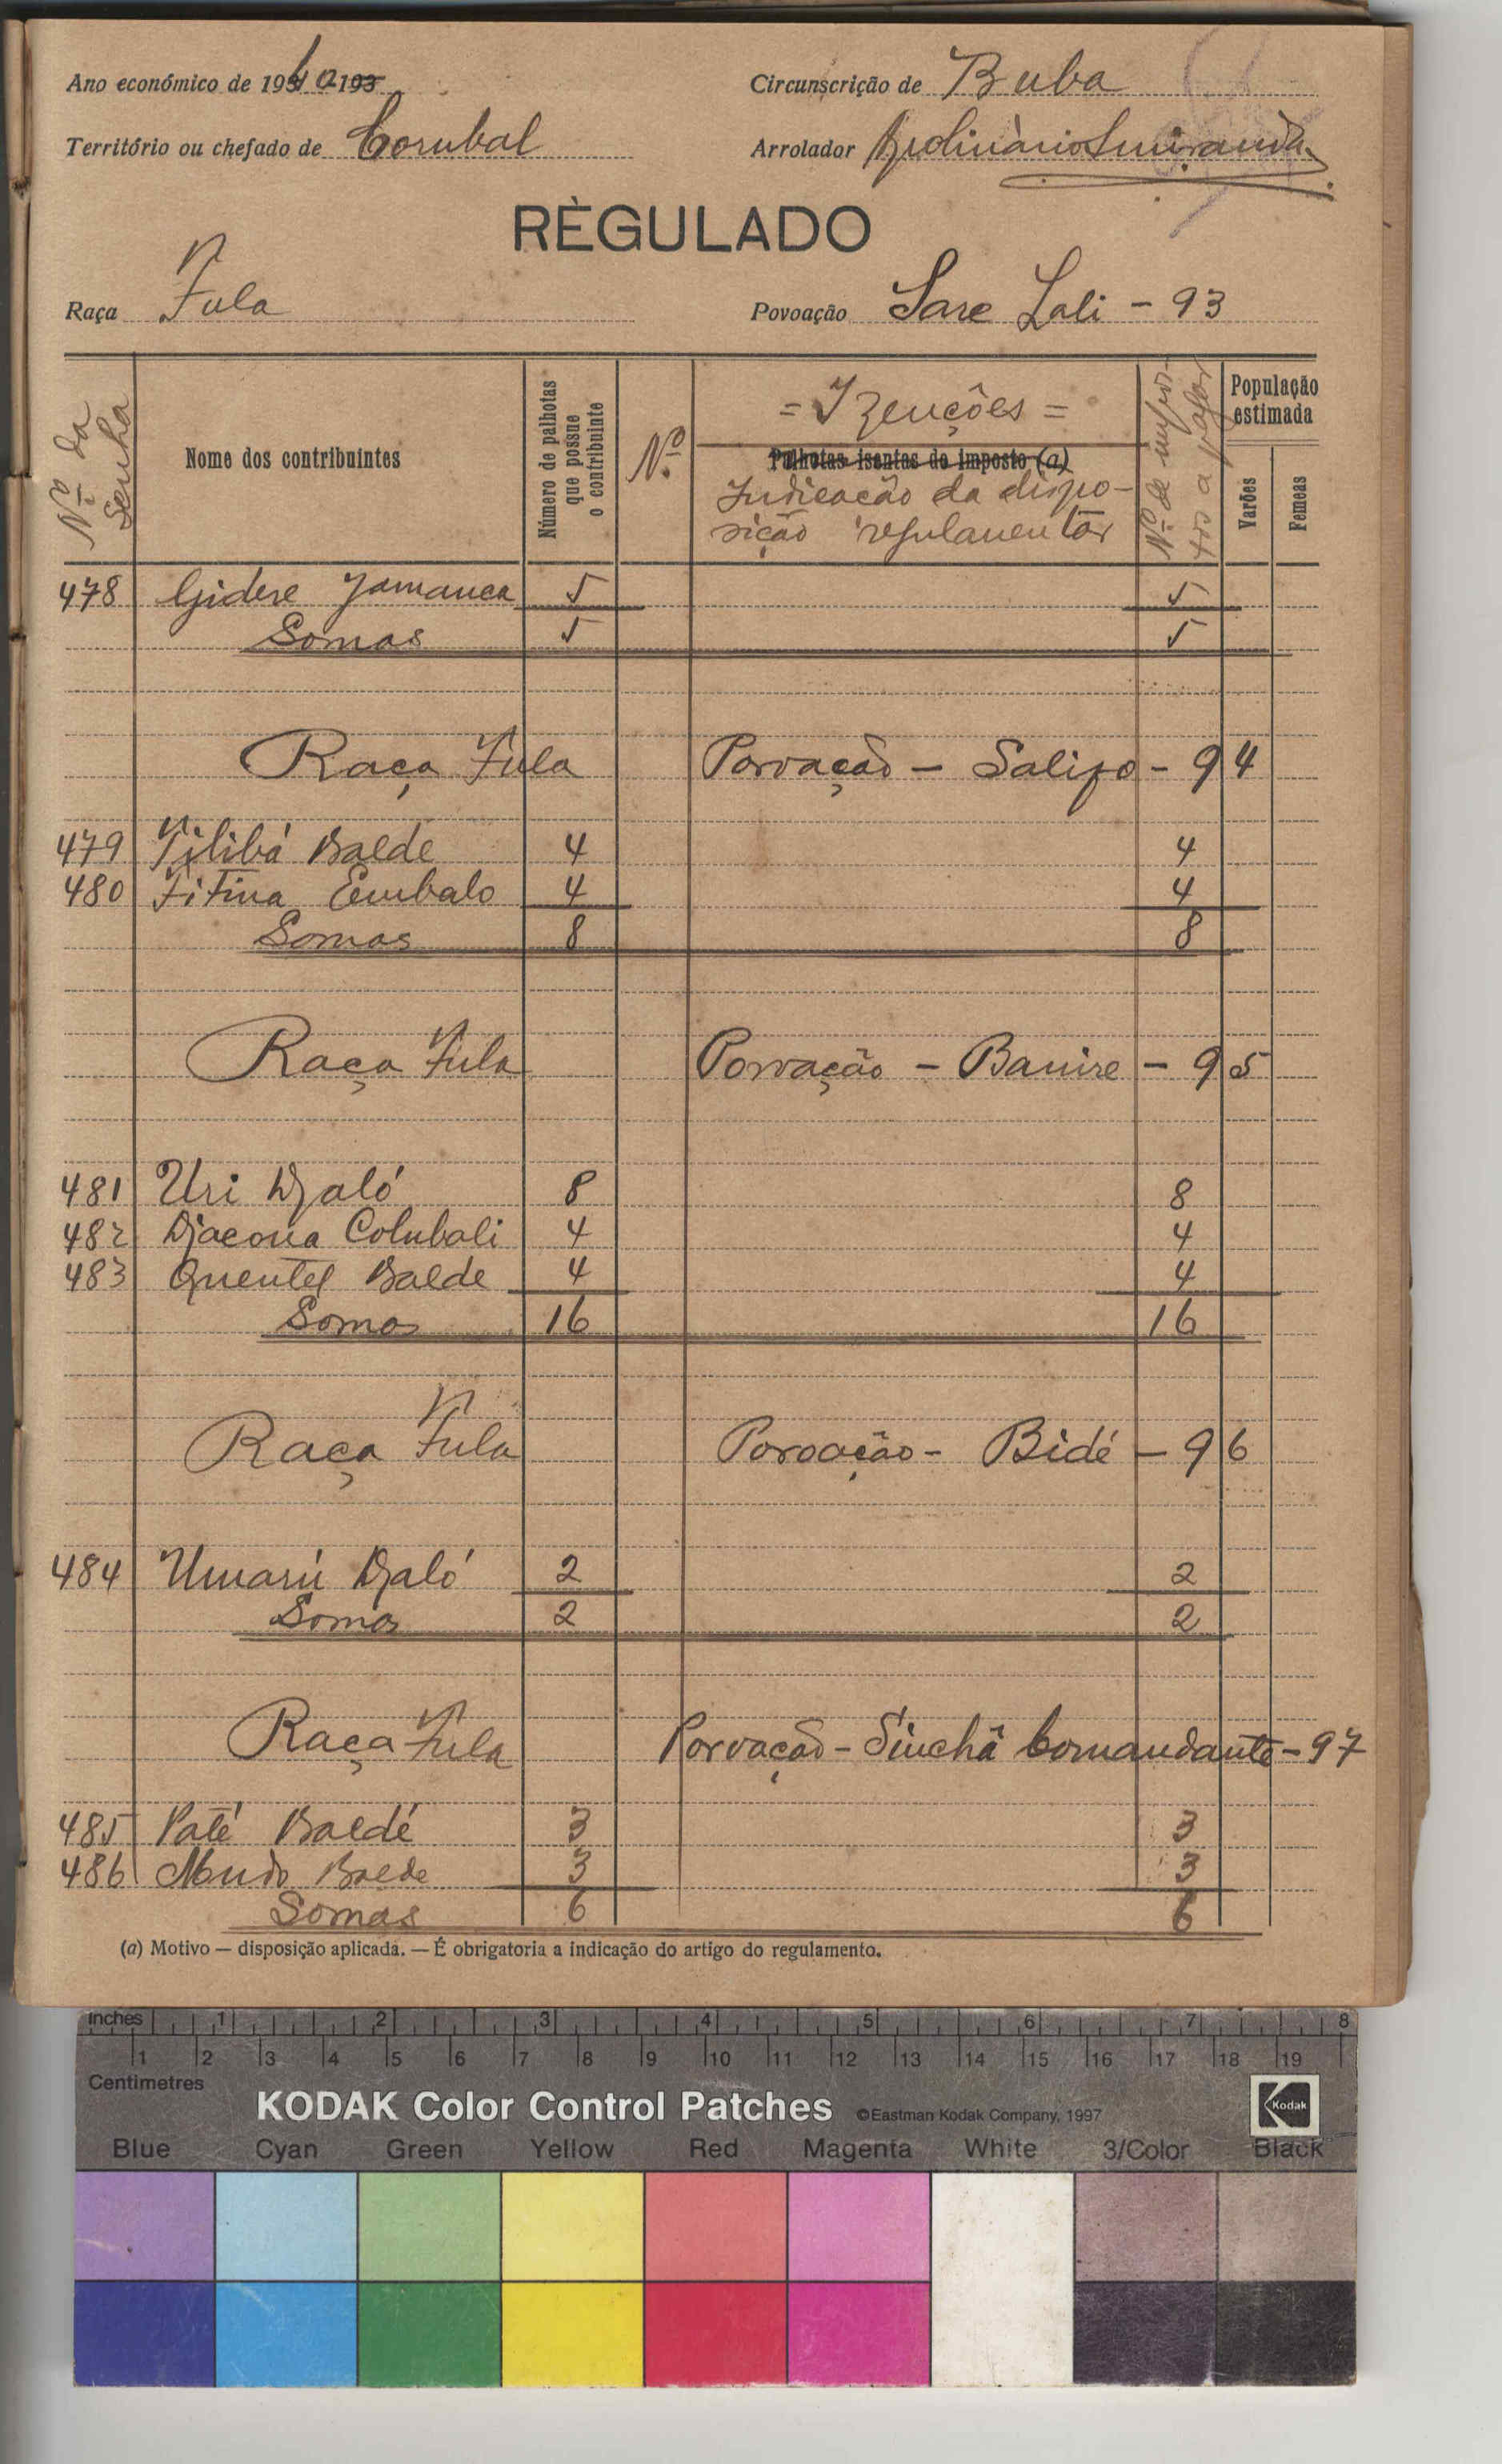 Ano económico de 19
Circunscrição de Buba
Território ou chefado de Corubal
Arrolador Apolinário Miranda
RÈGULADO
Raça Fula
Povoação Sare Lali - 93
Nº da Senha
Nome dos contribuintes
Número de palhotas que possue o contribuinte
Nº
= Izenções =
Palhotas isentas do imposto (a)
Indicação da dispo-
sição regulamentar
Nº de impos-
tos a pagar
População estimada
Varões
Femeas
478 Gidere Jamanca 5 5
Somas 5 5
Raça Fula Povoação - Salifo - 94
479 Filibá Balde 4 4
480 Fitina Embalo 4 4
Somas 8 8
Raça Fula Povoação - Banire - 95
481 Uri Djaló 8 8
482 Djacona Colubali 4 4
483 Quentel Balde 4 4
Somas 16 16
Raça Fula Povoação - Bidé - 96
484 Umarú Djaló 2 2
Somas 2 2
Raça Fula Povoação - Sinchã Comandante - 97
485 Paté Baldé 3 3
486 Mudo Balde 3 3
Somas 6 6
(a) Motivo — disposição aplicada. — É obrigatoria a indicação do artigo do regulamento.
Inches 1 2 3 4 5 6 7 8
1 2 3 4 5 6 7 8 9 10 11 12 13 14 15 16 17 18 19
Centimetres
KODAK Color Control Patches ©Eastman Kodak Company, 1997 Kodak
Blue Cyan Green Yellow Red Magenta White 3/Color Black